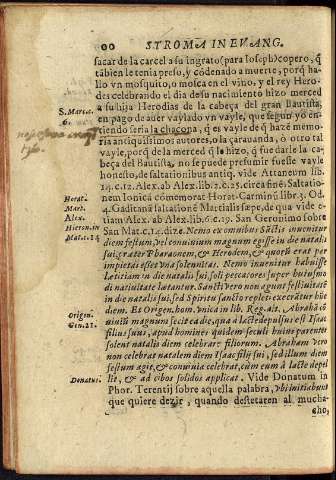 90 STROMA IN EVANG.
sacar de la carcel a su ingrato (para Ioseph) copero, q̃
tãbien le tenia preso, y cõdenado a muerte, porq̃ ha-
llo vn mosquito, o mosca en el vino, y el rey Hero-
des celebrando el dia de su nacimiento hizo merced
S. Marc. 6.
a su hija Herodias de la cabeça del gran Bautista,
en pago de auer vaylado vn vayle, que segun yo en-
tiendo seria la chacona, q̃ es vayle de q̃ hazẽ memo-
ria antiquissimos autores, o la çarauanda, ò otro tal
vayle, porq̃ de la merced q̃ le hizo, q̃ fue darle la ca-
beça del Bautista, no se puede presumir fuesse vayle
honesto, de saltationibus antiq. vide Atheneum lib.
14. c. 12. Alex. ab Alex. lib. 2. c. 25. circa finẽ. Saltatio-
Horat.
nem Ionicã cõmemorat Horat. Carminũ libr. 3. Od.
Mart.
4. Gaditanã saltationẽ Martialis sæpe, de qua vide e-
Alex.
tiam Alex. ab Alex. lib. 6. c. 19. San Geronimo sobre
Hieron. in Mat. c. 14
San Mat. c. 14. dize. Nemo ex omnibus Sãctis inuenitur
diem festum, vel conuiuium magnum egisse in die natali
sui, præter Pharaonem, & Herodem, & quorũ erat par
impietas esset vna solennitas. Nemo inuenitur habuisse
lætitiam in die natalis sui, soli peccatores super huiusmo
di natiuitate lætantur. Sancti vero non agunt festiuitatẽ
in die natalis sui, sed Spiritu sancto repleti execrãtur hũc
diem. Et Origen. hom. vnica in lib. Reg. ait. Abrahã cõ
Origin. Gen. 21.
uiuiũ magnum fecit ea die, qua à lacte depulsus est Isaac
filius suus, apud homines quidem seculi huius parentes
solent natalis diem celebrare filiorum. Abraham vero
non celebrat natalem diem Isaac filij sui, sed illum diem
festum agit, & conuiuia celebrat, cùm eum à lacte depel
Donatus.
lit, & ad cibos solidos applicat. Vide Donatum in
Phor. Terentij sobre aquella palabra, vbi initiabunt
que quiere dezir, quando destetaren al mucha-
cho,